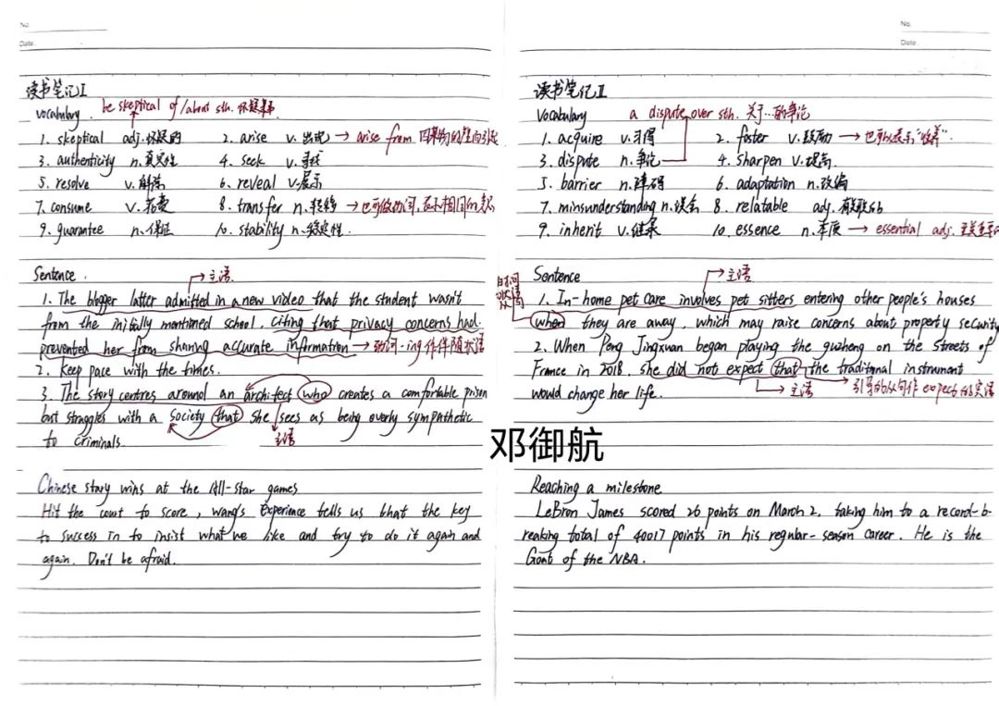 No.
Date.
读书笔记I
vocabulary be skeptical of/about sth. 怀疑某事
1. skeptical adj.怀疑的 2. arise v.出现 → arise from
3. authenticity n.真实性 4. seek v.寻找
5. resolve v.解决 6. reveal v.展示
7. consume v.花费 8. transfer n.转移 →
9. guarantee n.保证 10. stability n.稳定性.
Sentence.
→主语
1. The blogger latter admitted in a new video that the student wasn't
from the initially mentioned school, citing that privacy concerns had
prevented her from sharing accurate information → 动词-ing作伴随状语
2. keep pace with the times.
3. The story centres around an architect who creates a comfortable prison
but struggles with a society that she sees as being overly sympathetic
主语
to criminals.
Chinese story wins at the All-Star games
Hit the court to score, wang's Experience tells us that the key
to success in to insist what we like and try to do it again and
again. Don't be afraid.
No.
Date.
读书笔记II
Vocabulary a dispute over sth. 关于..的争论
1. acquire v.习得 2. foster v.鼓励 → 也可以表示"收养".
3. dispute n.争论 4. sharpen v.提高.
5. barrier n.障碍 6. adaptation n.改编
7. minsunderstanding n.误会 8. relatable adj.
9. inherit v.继承 10. essence n.本质 → essential adj.
Sentence
→主语
1. In-home pet care involves pet sitters entering other people's houses
when they are away, which may raise concerns about property security
2. When Peng Jingxuan began playing the guzheng on the streets of
France in 2018, she did not expect that the traditional instrument
would change her life. →主语 引导的从句作expect的宾语
Reaching a milestone
LeBron James scored 26 points on March 2, taking him to a record-b-
reaking total of 40017 points in his regular-season career. He is the
Goat of the NBA.
邓御航